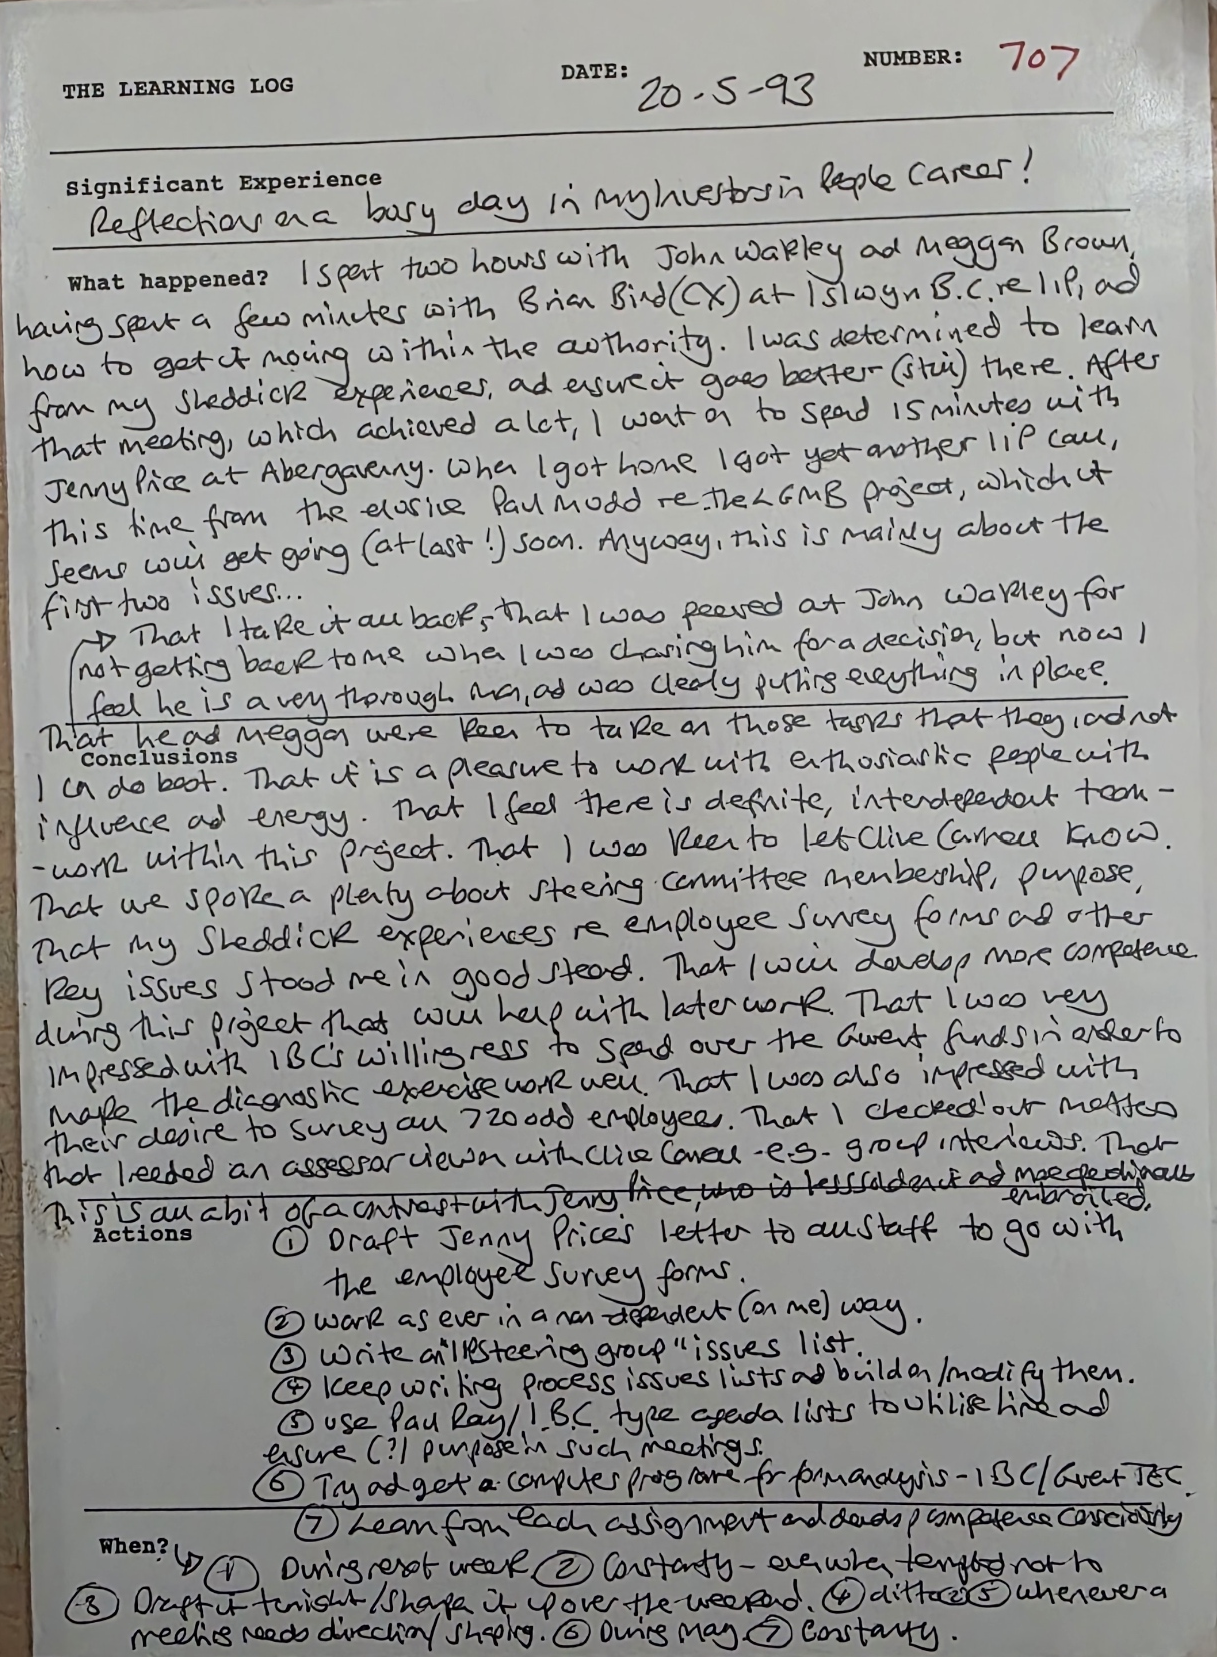 THE LEARNING LOG DATE: 20-5-93 NUMBER: 707
Significant Experience
Reflections on a busy day in my Investors in People Career!
What happened? I spent two hours with John Wakley ad Meggan Brown,
having spent a few minutes with Brian Bird (CX) at Islwyn B.C. re IIP, ad
how to get it moving within the authority. I was determined to learn
from my Sheddick experiences, ad ensure it goes better (still) there. After
that meeting, which achieved a lot, I went on to spend 15 minutes with
Jenny Price at Abergavenny. When I got home I got yet another IIP call,
this time from the elusive Paul Mudd re the LGMB project, which it
seems will get going (at last!) soon. Anyway, this is mainly about the
first two issues...
→ That I take it all back, that I was peeved at John Wakley for
not getting back to me when I was chasing him for a decision, but now I
feel he is a very thorough man, ad was clearly putting everything in place.
That he ad Meggan were keen to take on those tasks that they, ad not
Conclusions
I can do best. That it is a pleasure to work with enthusiastic people with
influence ad energy. That I feel there is definite, interdependent team-
-work within this project. That I was keen to let Clive Carnell know.
That we spoke a plenty about steering committee membership, purpose,
That my Sheddick experiences re employee survey forms ad other
key issues stood me in good stead. That I will develop more competence
during this project that will help with later work. That I was very
impressed with IBC's willingness to spend over the Gwent funds in order to
make the diagnostic exercise work well. That I was also impressed with
their desire to survey all 720 odd employees. That I checked out matters
that I needed an assessor view on with Clive Carnell - e.g. group interviews. That
this is all a bit of a contrast with Jenny Price, who is less sold on it ad more operationally
embroiled.
Actions
① Draft Jenny Price's letter to all staff to go with
the employee survey forms.
② Work as ever in a non-dependent (on me) way.
③ Write an "IIP Steering group" issues list.
④ Keep writing process issues lists ad build on/modify them.
⑤ Use Paul Ray/I.B.C. type agenda lists to utilise time ad
ensure (?) purpose in such meetings.
⑥ Try ad get a computer programme for form analysis - IBC/Gwent TEC.
⑦ Learn from each assignment and develop competence consciously
When? → ① During next week ② Constantly - even when tempted not to
③ Draft it tonight/shape it up over the weekend. ④ ditto ⑤ whenever a
meeting needs direction/shaping. ⑥ During May. ⑦ Constantly.